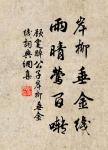 岸柳垂金线
雨晴莺百啭
顾夐醉公子岸柳垂金
线词典网集